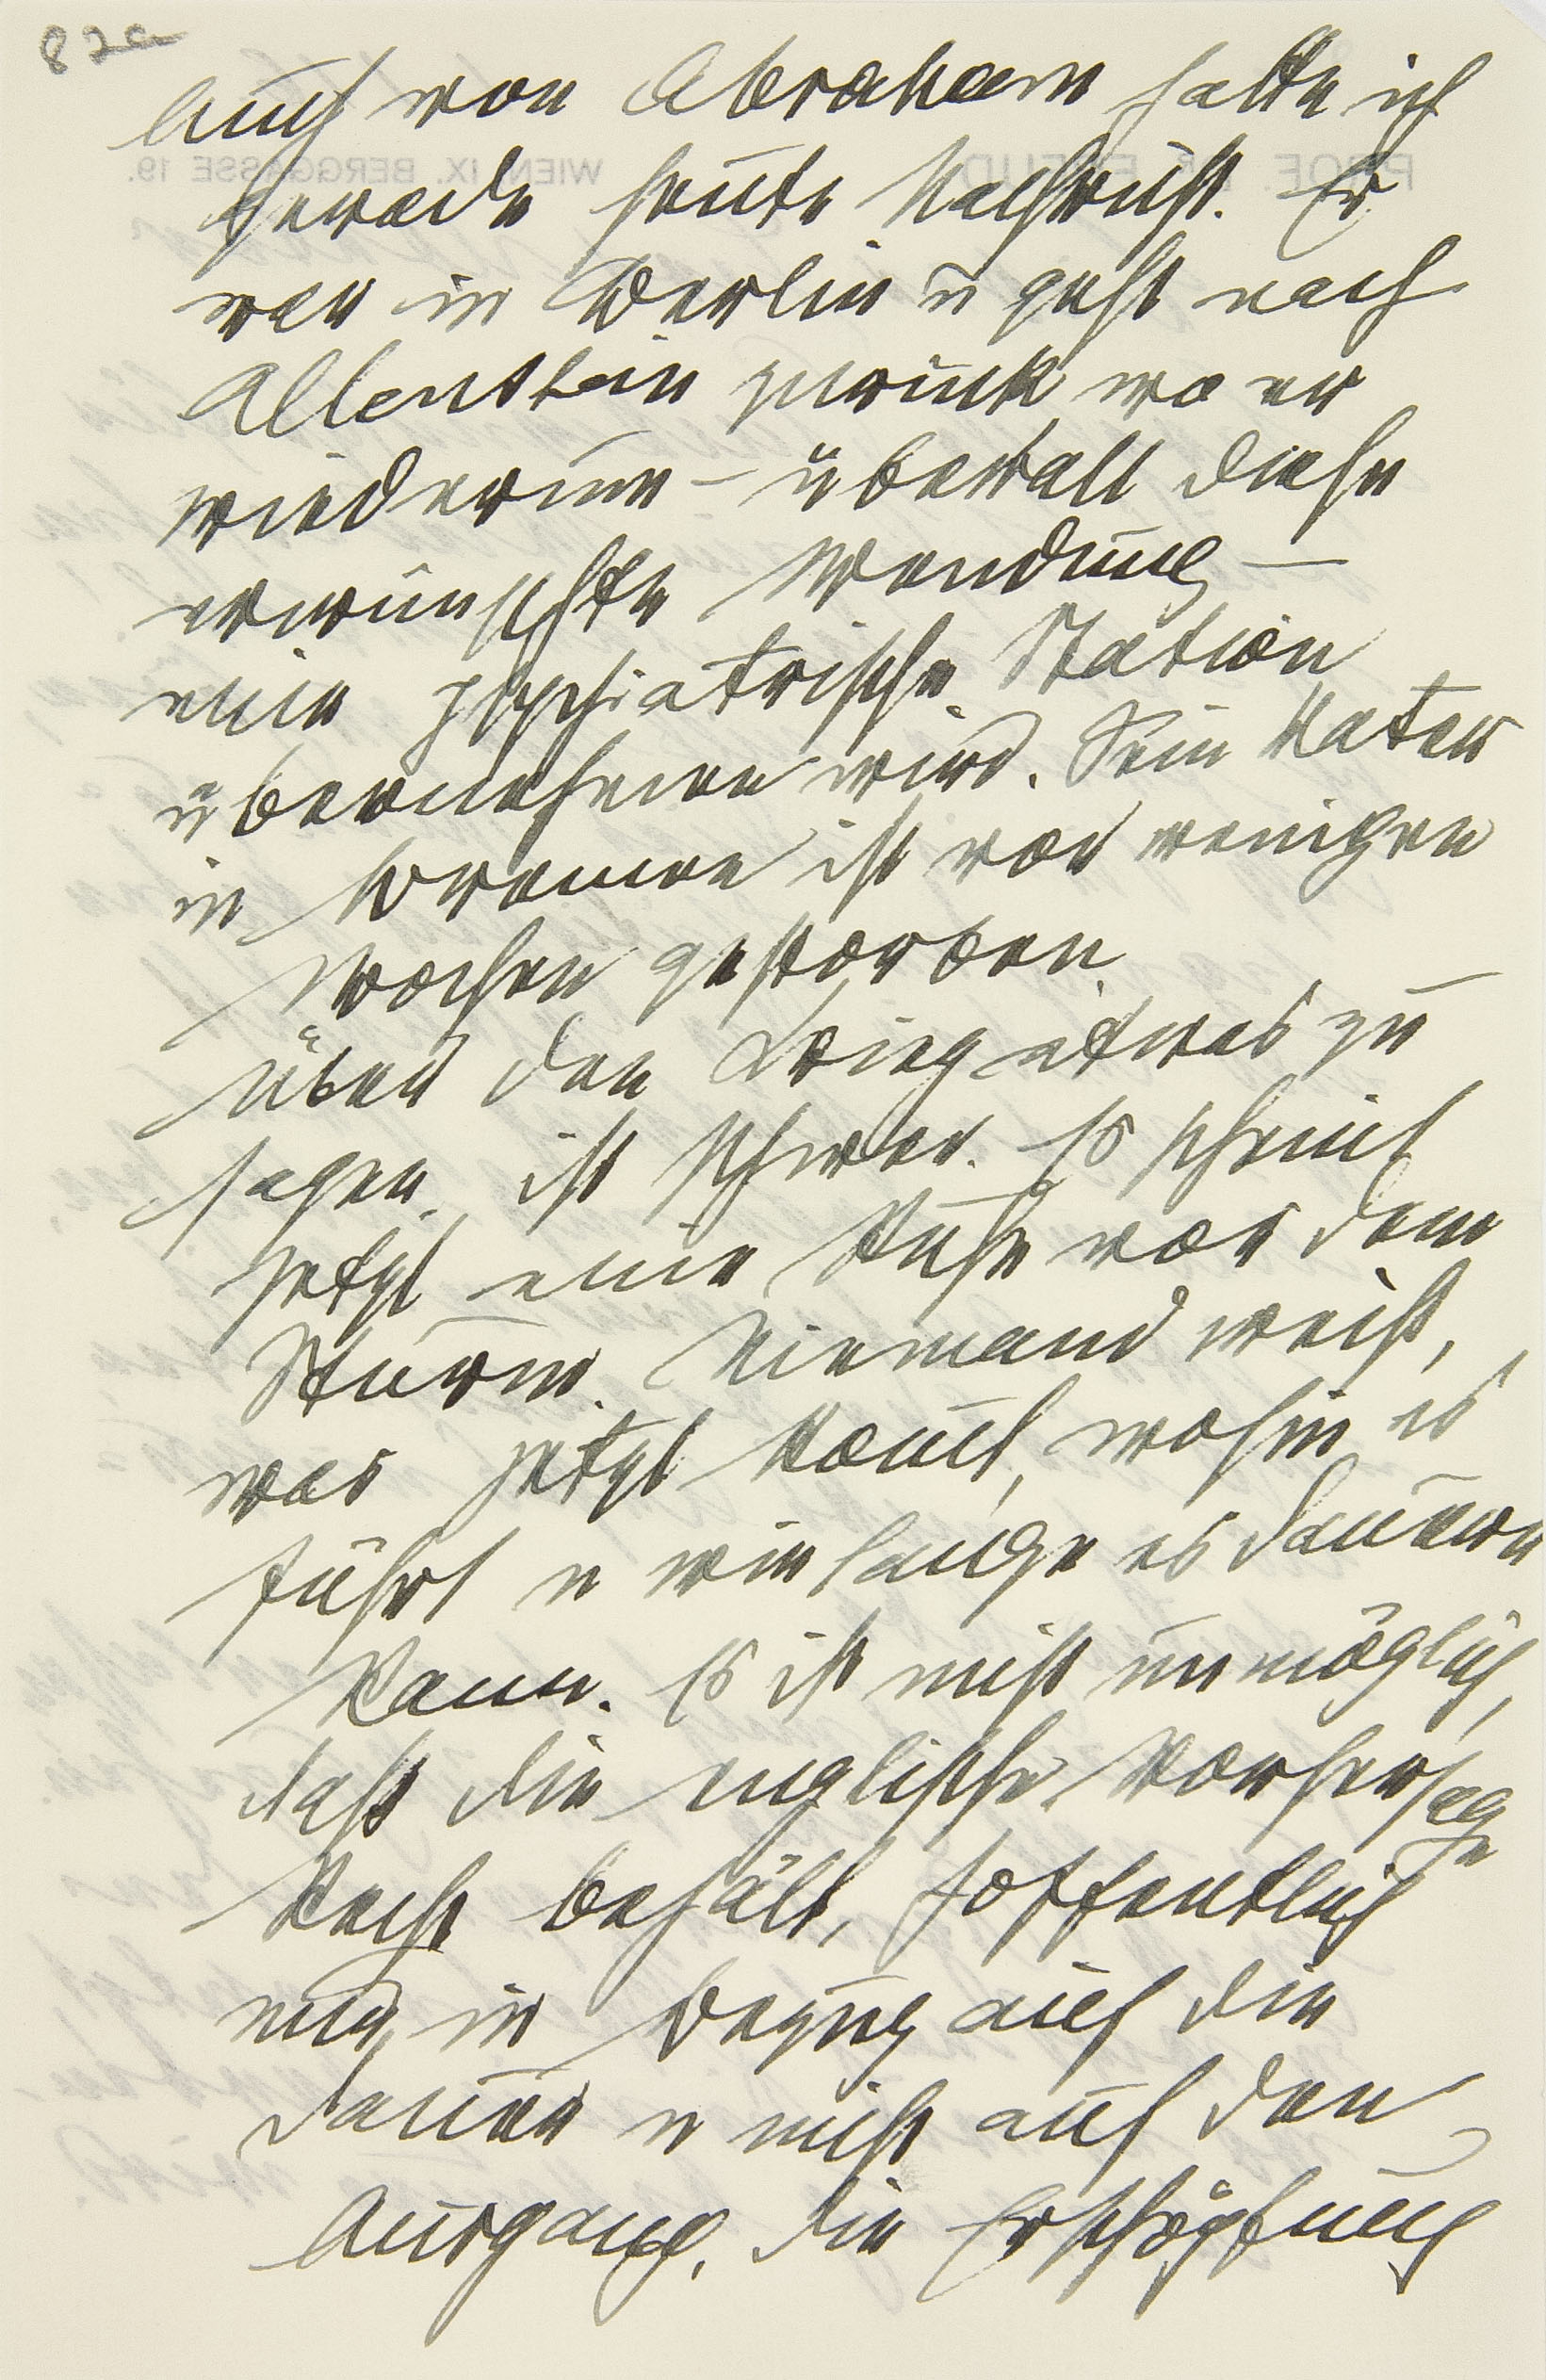 82a
Auch von Abraham hatte ich
gerade heute Nachricht. Er
war in Berlin u geht nach
Allenstein zurück, wo er
wiederum – überall diese
erwünschte Wendung –
eine psychiatrische Station
übernehmen wird. Sein Vater
in Bremen ist vor wenigen
Wochen gestorben.
Über den Krieg etwas zu
sagen, ist schwer. Es scheint
jetzt eine Ruhe vor dem
Sturm. Niemand weiß,
was jetzt kommt, wohin es
führt u wie lange es dauern
kann. Es ist nicht unmöglich,
daß die englische Vorhersage
Recht behält, hoffentlich
nur in Bezug auf die
Dauer u nicht auf den
Ausgang. Die Erschöpfung
PROF. DR. FREUD
WIEN, IX. BERGGASSE 19.